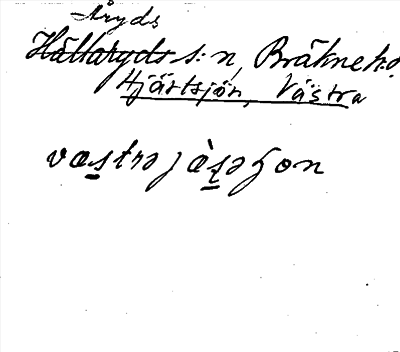 Åryds
Hällaryds s:n, Bräkne hd.
Hjärtsjön, Västra
væstrə jæ̀ʂəɧon